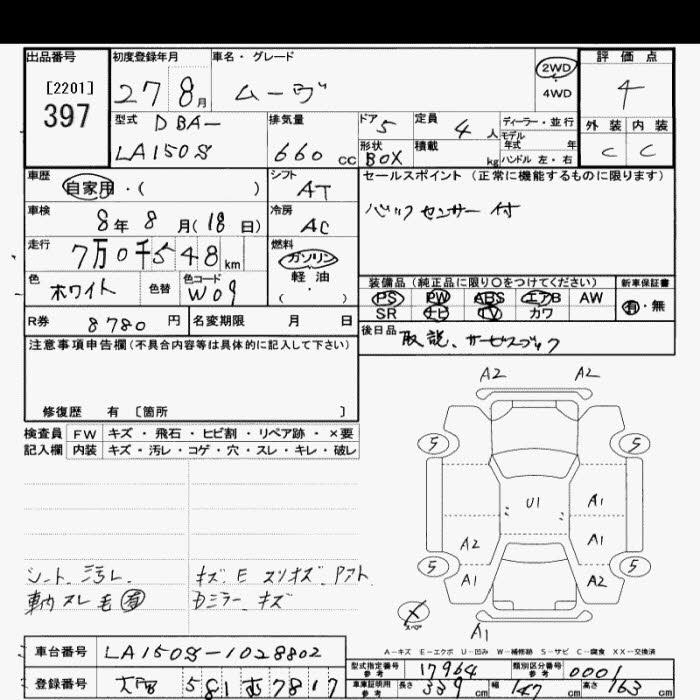 出品番号 初度登録年月 車名・グレード 評価点
[2201]
397
27 8月 ムーヴ 2WD 4WD 4
型式 DBA- 排気量 ドア 5 定員 4人 ディーラー・並行 外装 内装
LA150S 660cc 形状 BOX 積載 kg モデル年式 年 C C
ハンドル 左・右
車歴 シフト セールスポイント(正常に機能するものに限ります)
自家用・( ) AT
車検 8年8月(18日) 冷房 AC バックセンサー付
走行 7万0千548km 燃料 ガソリン
色 ホワイト 色替 色コード W09 軽油 装備品(純正品に限り○をつけてください) 新車保証書
・( ) PS PW ABS エアB AW 有・無
R券 8780円 名変期限 月 日 SR ナビ TV カワ
注意事項申告欄(不具合内容等は具体的に記入して下さい) 後日品 取説、サービスブック
修復歴 有 [箇所 ]
検査員 FW キズ・飛石・ヒビ割・リペア跡・×要
記入欄 内装 キズ・汚レ・コゲ・穴・スレ・キレ・破レ
A2 A2
5 5
U1 A1
A2 A1
5 A1 A2 5
シート 汚レ キズ E スリキズ
車内 スレ 毛 有 Dミラー キズ
スペア A1
A-キズ E-エクボ U-凹み W-補修跡 S-サビ C-腐食 XX-交換済
車台番号 LA150S-1028802
型式指定番号 参考 17964 類別区分番号 参考 0001
登録番号 581む7817
車庫証明用 参考 長さ 339cm 幅 147cm 高さ 163cm